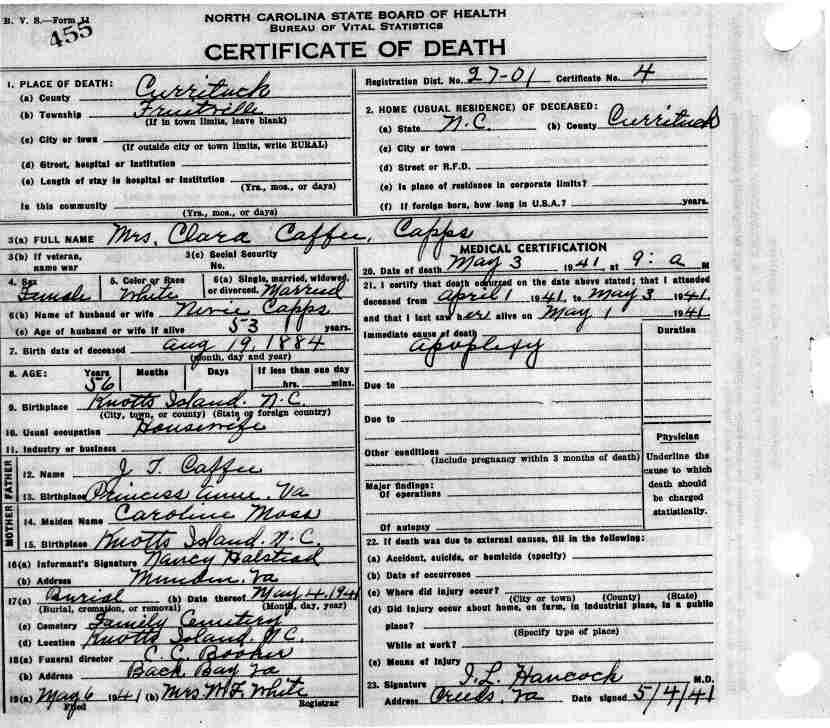 B. V. S.—Form 11
455
NORTH CAROLINA STATE BOARD OF HEALTH
BUREAU OF VITAL STATISTICS
CERTIFICATE OF DEATH
1. PLACE OF DEATH:
(a) County Currituck
(b) Township Fruitville
(If in town limits, leave blank)
(c) City or town
(If outside city or town limits, write RURAL)
(d) Street, hospital or institution
(e) Length of stay in hospital or institution
(Yrs., mos., or days)
In this community
(Yrs., mos., or days)
Registration Dist. No. 27-01 Certificate No. 4
2. HOME (USUAL RESIDENCE) OF DECEASED:
(a) State N.C. (b) County Currituck
(c) City or town
(d) Street or R.F.D.
(e) Is place of residence in corporate limits?
(f) If foreign born, how long in U.S.A.? years.
3(a) FULL NAME Mrs. Clara Caffee, Capps
3(b) If veteran, name war
3(c) Social Security No.
4. Sex Female
5. Color or Race White
6(a) Single, married, widowed, or divorced. Married
6(b) Name of husband or wife Capps
(c) Age of husband or wife if alive 53 years.
7. Birth date of deceased Aug 19, 1884
(month, day and year)
8. AGE: Years 56 Months Days If less than one day hrs. mins.
9. Birthplace Knotts Island. N.C.
(City, town, or county) (State or foreign country)
10. Usual occupation Housewife
11. Industry or business
FATHER
12. Name J T. Caffee
13. Birthplace Princess Anne. Va
MOTHER
14. Maiden Name Caroline
15. Birthplace Knotts Island. N.C.
16(a) Informant's Signature Nancy Halstead
(b) Address Munden. Va
17(a) Burial (b) Date thereof May 4, 1941
(Burial, cremation, or removal) (Month, day, year)
(c) Cemetery Family Cemetery
(d) Location Knotts Island, N.C.
18(a) Funeral director C. C. Booker
(b) Address Back Bay Va
19(a) May 6 1941 (b) Mrs W. F. White
Filed Registrar
MEDICAL CERTIFICATION
20. Date of death May 3 1941 at 9: a M
21. I certify that death occurred on the date above stated; that I attended
deceased from April 1 1941 to May 3 1941
and that I last saw her alive on May 1 1941
Immediate cause of death Duration
Apoplexy
Due to
Due to
Other conditions
(Include pregnancy within 3 months of death)
Major findings:
Of operations
Of autopsy
Physician
Underline the
cause to which
death should
be charged
statistically.
22. If death was due to external causes, fill in the following:
(a) Accident, suicide, or homicide (specify)
(b) Date of occurrence
(c) Where did injury occur?
(City or town) (County) (State)
(d) Did injury occur about home, on farm, in industrial place, in a public
place?
(Specify type of place)
While at work?
(e) Means of injury
23. Signature I. L. Hancock M.D.
Address Creeds, Va Date signed 5/4/41